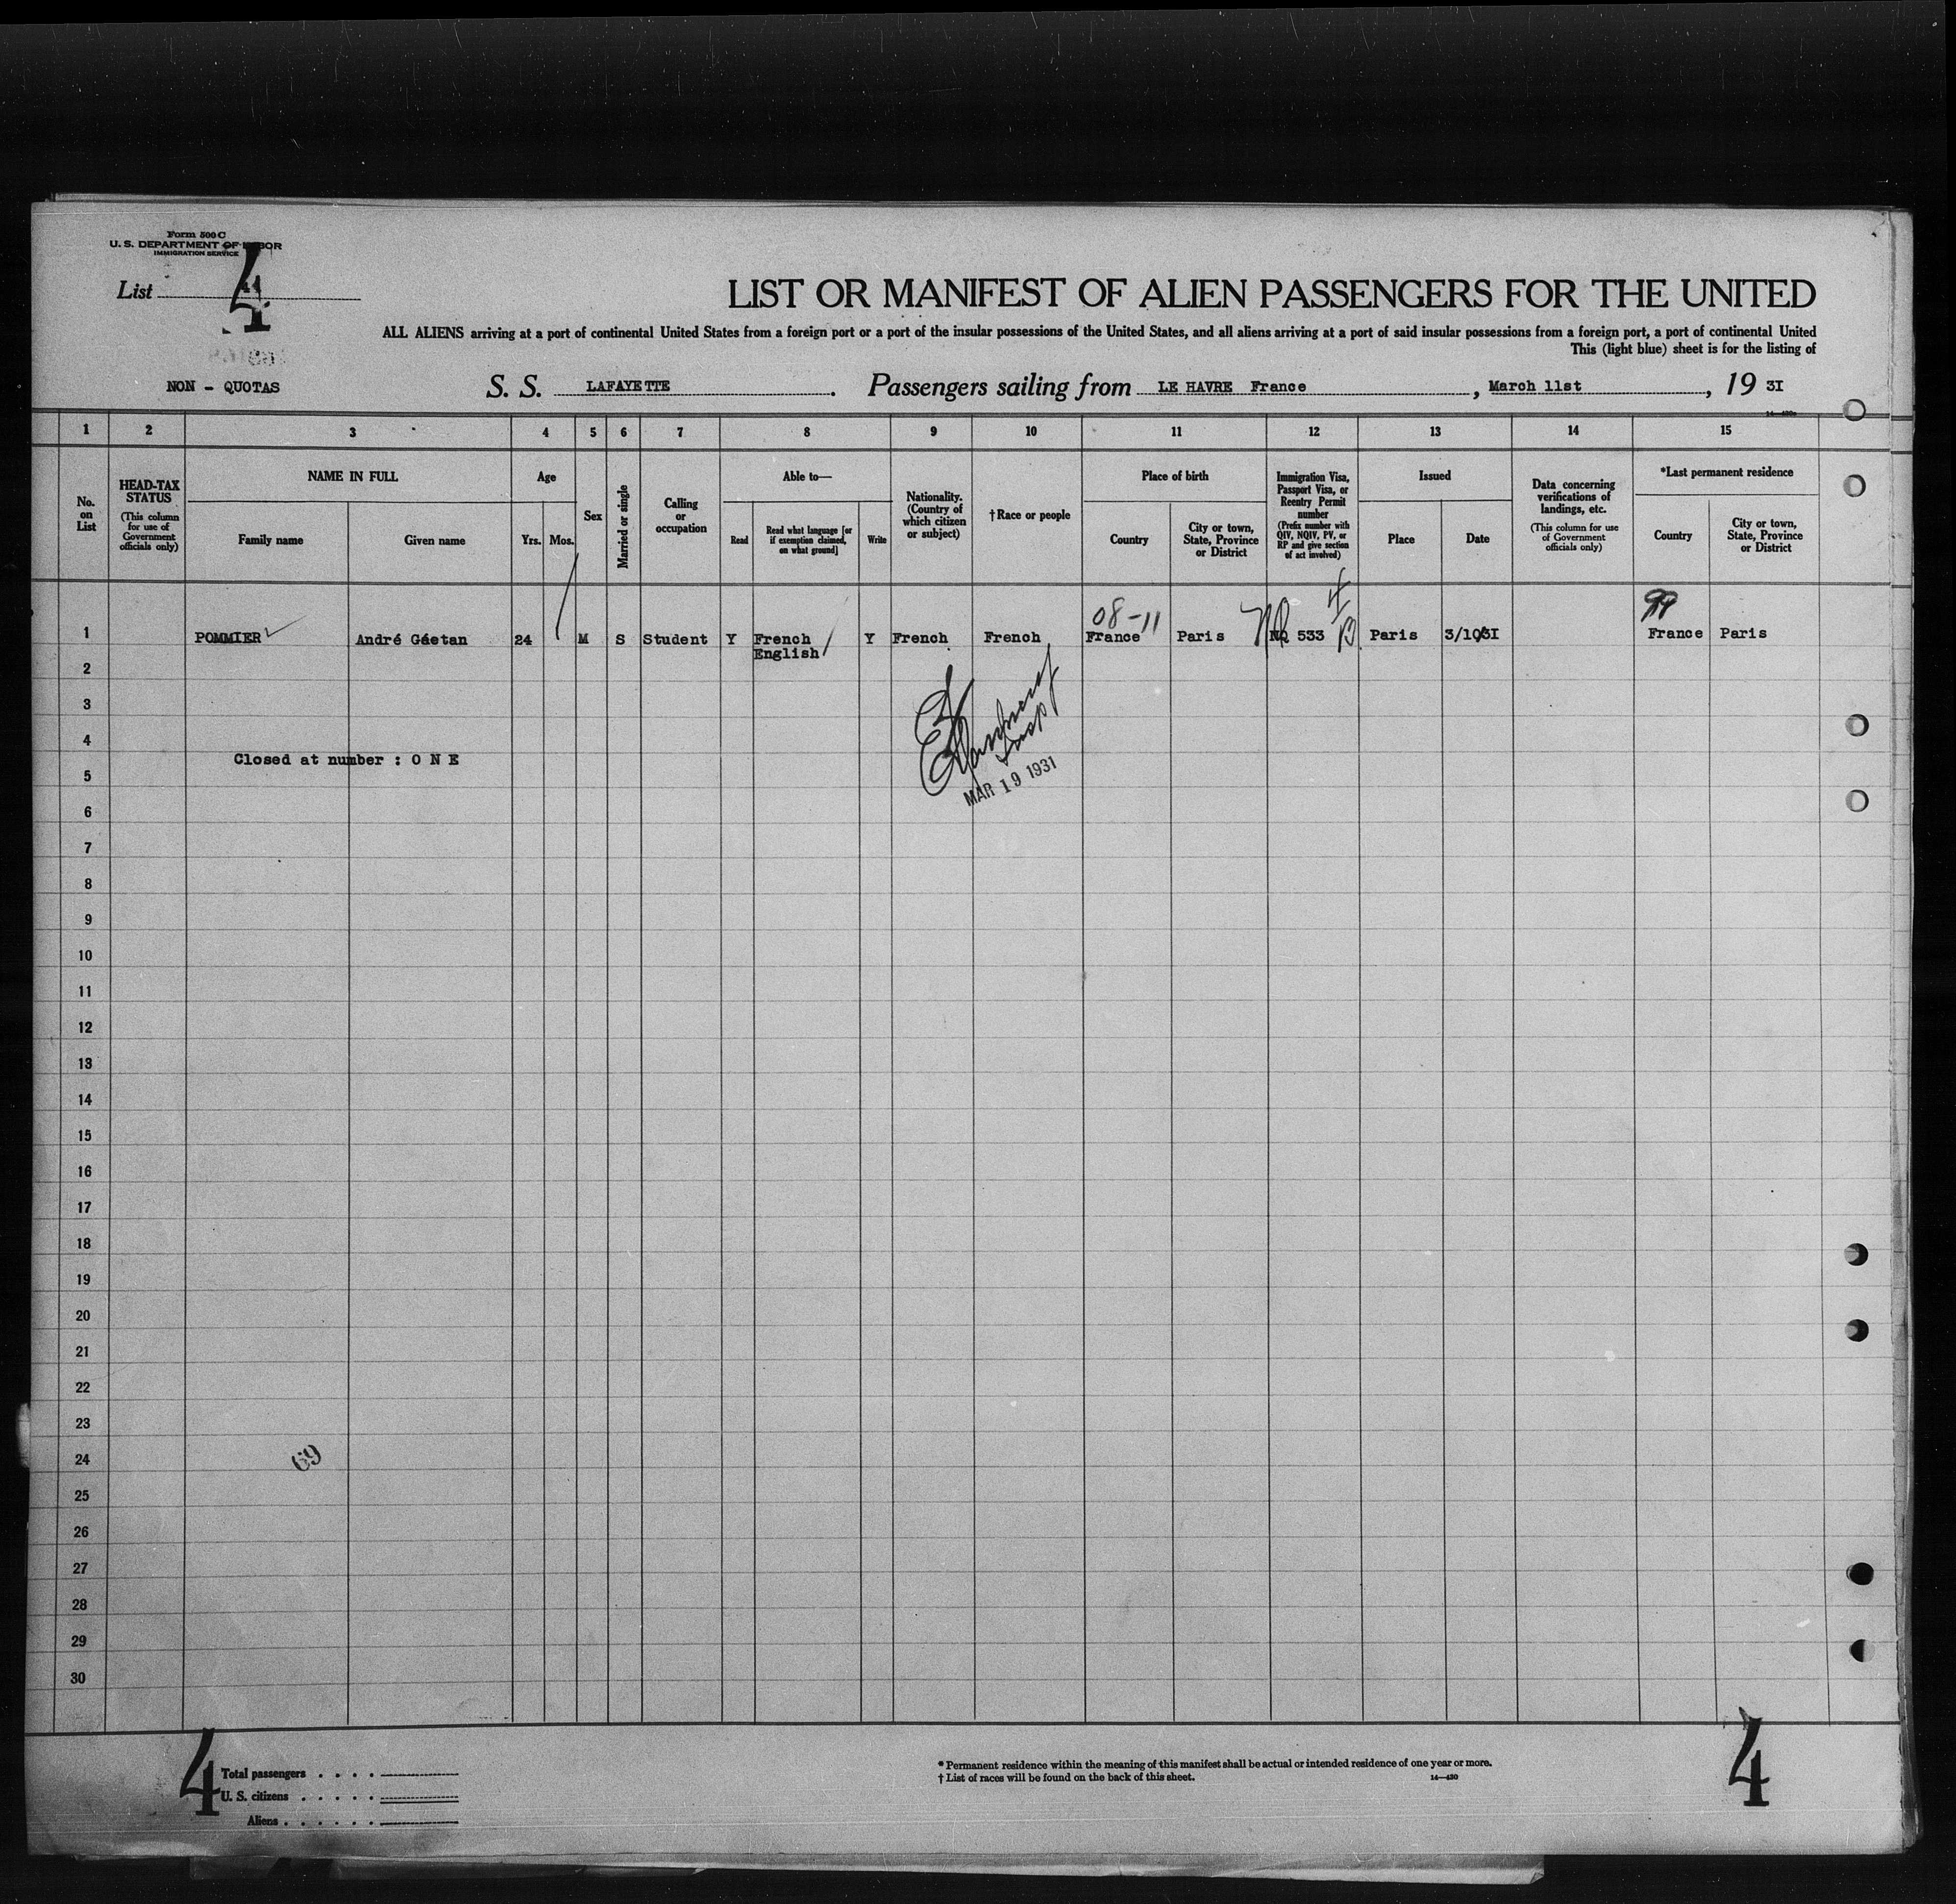 Form 500 C
U. S. DEPARTMENT OF LABOR
IMMIGRATION SERVICE
List 4
LIST OR MANIFEST OF ALIEN PASSENGERS FOR THE UNITED
ALL ALIENS arriving at a port of continental United States from a foreign port or a port of the insular possessions of the United States, and all aliens arriving at a port of said insular possessions from a foreign port, a port of continental United
This (light blue) sheet is for the listing of
NON - QUOTAS S. S. LAFAYETTE. Passengers sailing from LE HAVRE France, March 11st, 19 3I
1 2 3 4 5 6 7 8 9 10 11 12 13 14 15
No. on List
HEAD-TAX STATUS (This column for use of Government officials only)
NAME IN FULL
Family name
Given name
Age
Yrs. Mos.
Sex
Married or single
Calling or occupation
Able to—
Read
Read what language [or if exemption claimed, on what ground]
Write
Nationality. (Country of which citizen or subject)
†Race or people
Place of birth
Country
City or town, State, Province or District
Immigration Visa, Passport Visa, or Reentry Permit number (Prefix number with QIV, NQIV, PV, or RP and give section of act involved)
Issued
Place
Date
Data concerning verifications of landings, etc. (This column for use of Government officials only)
*Last permanent residence
Country
City or town, State, Province or District
08-11 4
1 POMMIER André Gáetan 24 M S Student Y French Y French French France Paris NQ 533 Paris 3/10/3I France Paris
English
2
3
4
Closed at number : O N E
5
MAR 19 1931
6
7
8
9
10
11
12
13
14
15
16
17
18
19
20
21
22
23
24
69
25
26
27
28
29
30
4
Total passengers . . . .
U. S. citizens . . . . .
Aliens . . . . . .
* Permanent residence within the meaning of this manifest shall be actual or intended residence of one year or more.
† List of races will be found on the back of this sheet.
14—430
4